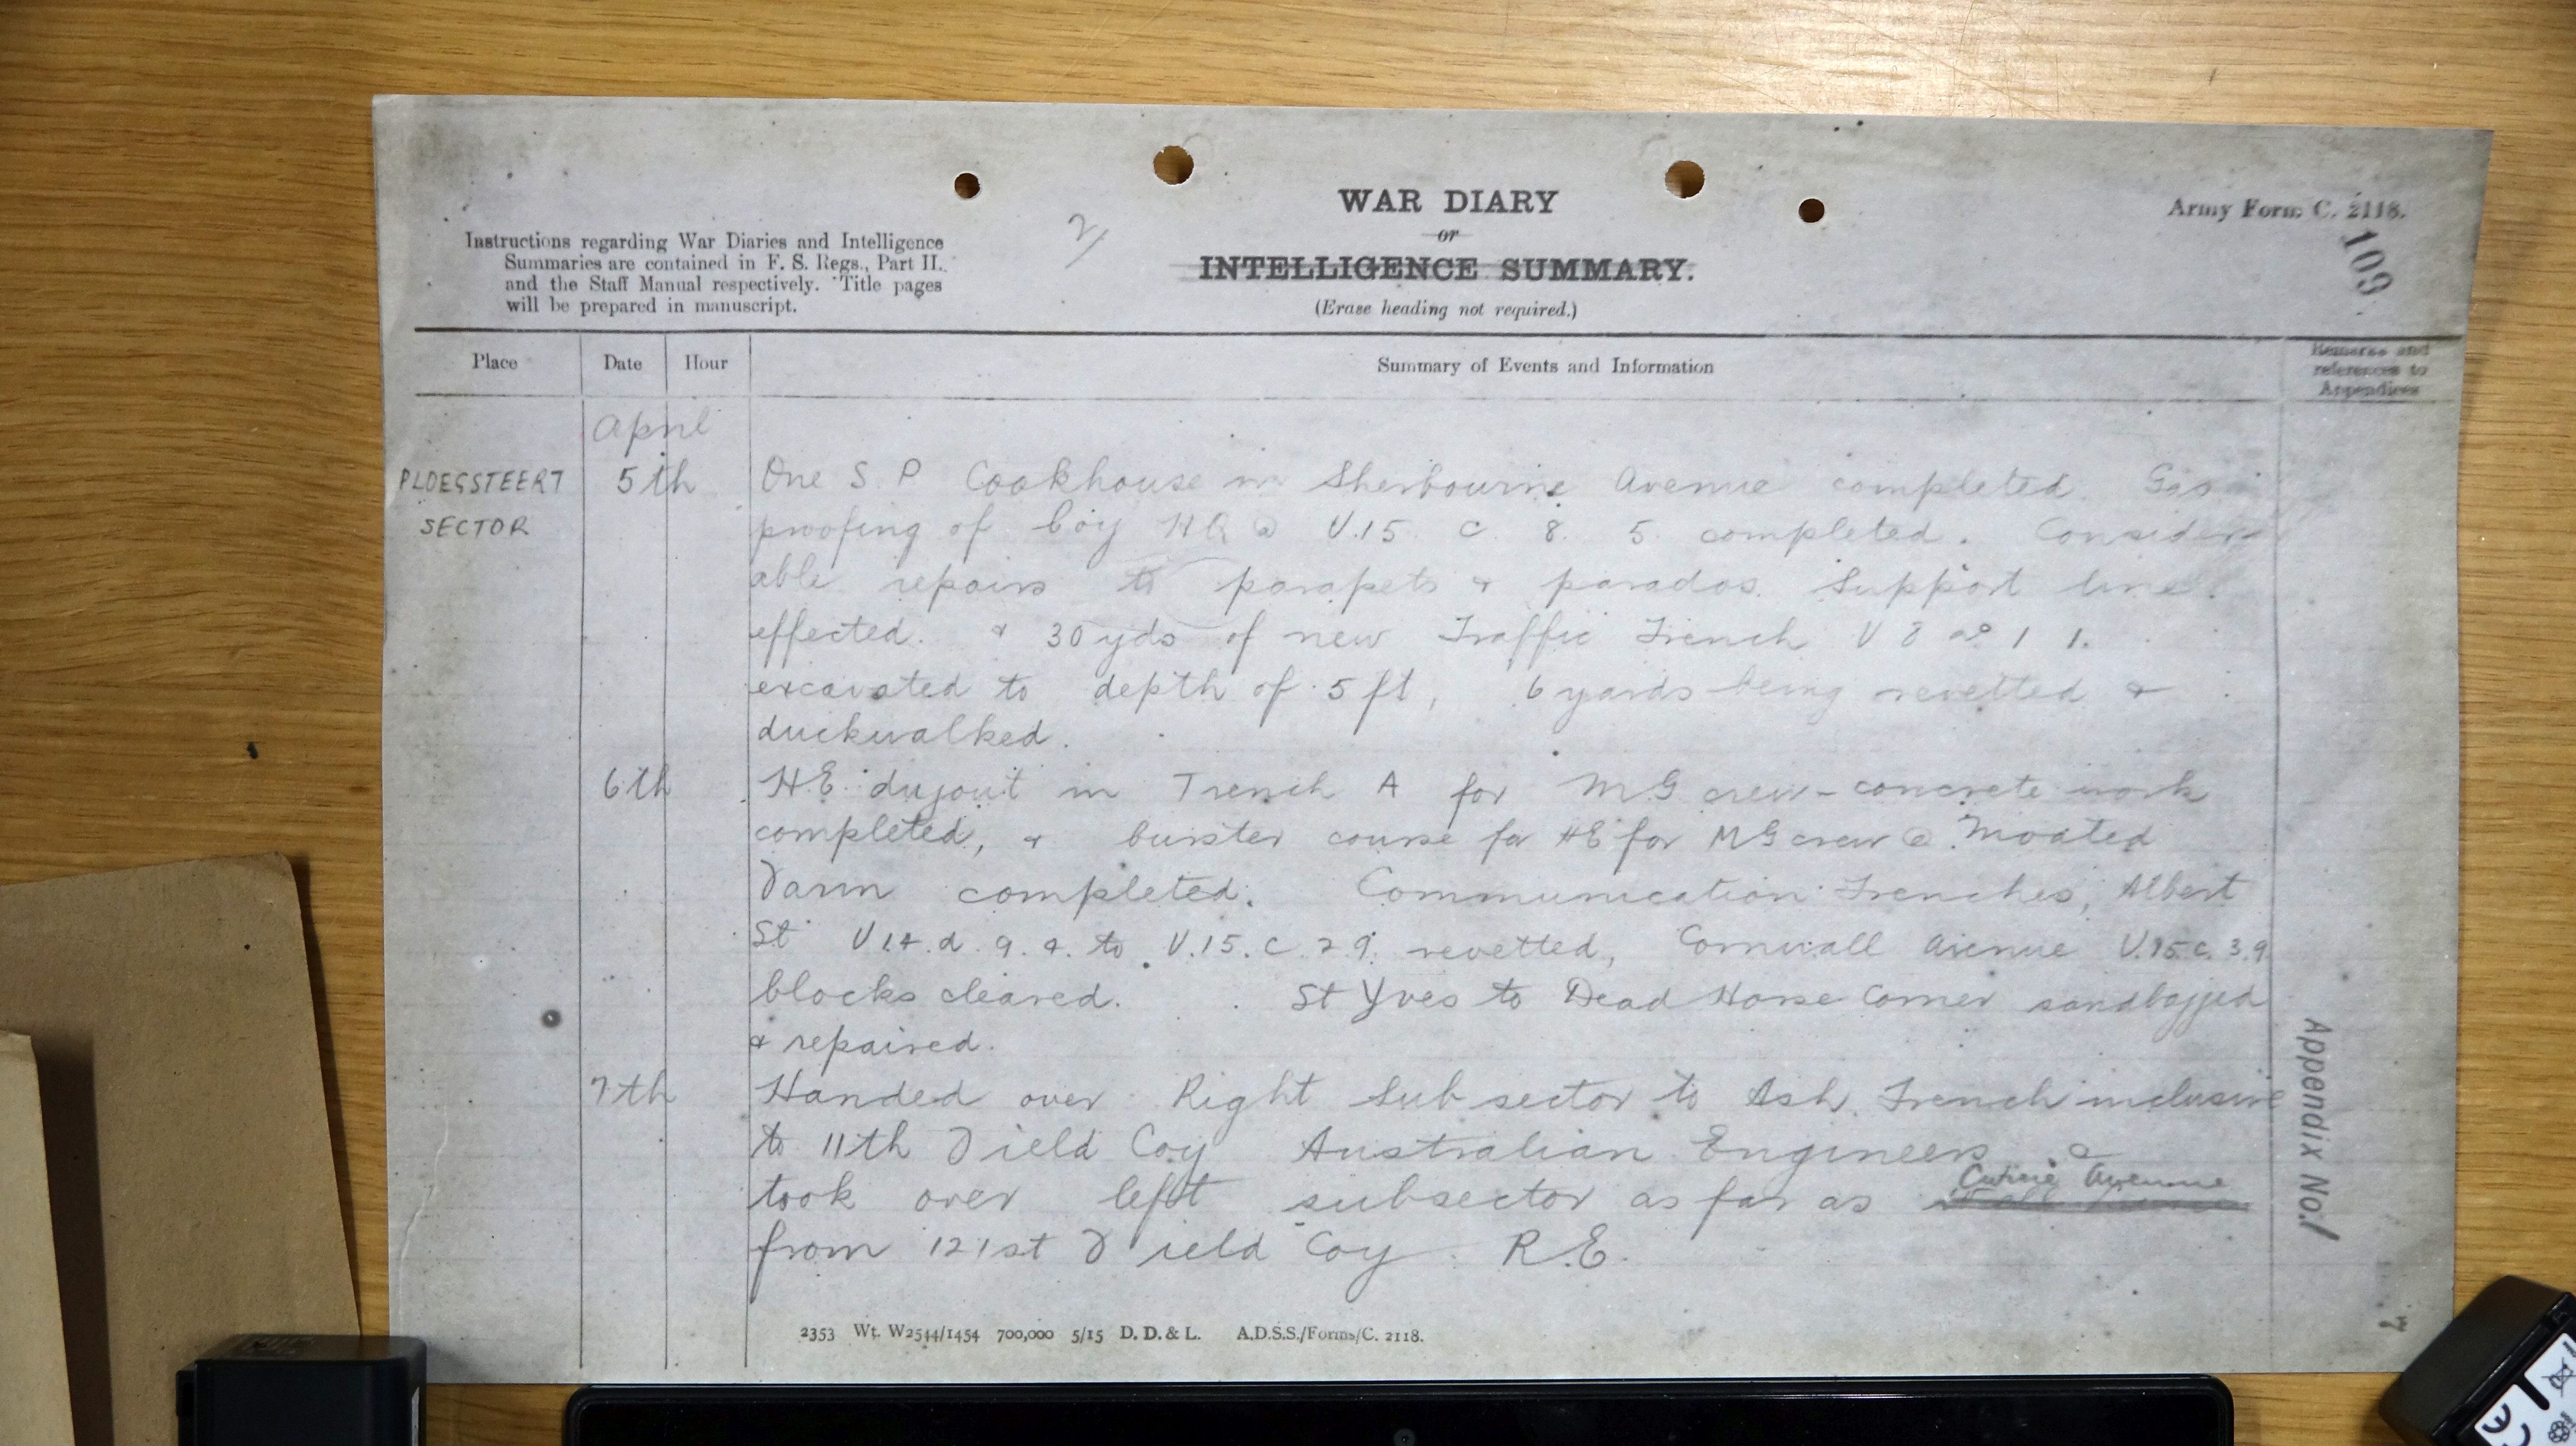 WAR DIARY
or
INTELLIGENCE SUMMARY.
(Erase heading not required.)
Army Form C. 2118.
109
2/
Instructions regarding War Diaries and Intelligence
Summaries are contained in F. S. Regs., Part II.
and the Staff Manual respectively. Title pages
will be prepared in manuscript.
Place Date Hour Summary of Events and Information Remarks and
references to
Appendices
April
PLOEGSTEERT 5th One S.P Cookhouse in Sherbourne Avenue completed. Gas
SECTOR proofing of Coy HQ @ V.15 c 8. 5. completed. Consider
able repairs to parapets & parados Support line
effected. & 30 yds of new Traffic Trench V 1 1.
excavated to depth of 5 ft, 6 yards being revetted &
duckwalked.
6th H.E. dugout in Trench A for MG crew - concrete work
completed, & burster course for HE for MG crew @ Moated
Farm completed. Communication Trenches, Albert
St V14.d.9.4. to V.15.c.2.9. revetted, Cornwall Avenue V.15.c.3.9
blocks cleared. St Yves to Dead Horse Corner sandbagged
& repaired.
7th Handed over Right Subsector to Ash Trench inclusive
to 11th Field Coy Australian Engineers &
took over left subsector as far as Avenue
from 121st Field Coy R.E.
Appendix No.1
7
2353 Wt. W2544/1454 700,000 5/15 D. D. & L. A.D.S.S./Forms/C. 2118.